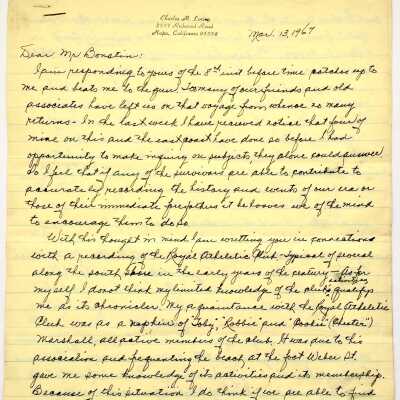 Charles M. Levine
Redwood Road
Napa, California
Mar. 13, 1967
Dear Mr Bonstin:
I am responding to yours of the 8th inst before time catches up to
me and beats me to the gun. So many of our friends and old
associates have left us on that voyage from whence so many
returns - In the last week I have received notice that four of
mine on this and the east coast have done so before I had
opportunity to make inquiry on subjects they alone could answer.
So I feel that if any of the survivors are able to contribute to
accurately recording the history and events of our era or
those of their immediate forefathers it behooves we of the mind
to encourage them to do so
With this thought in mind I am writing you in connections
with a recording of the Royal Athletic Club - typical of several
along the south shore in the early years of the century - As for
myself I do not think my limited knowledge of the club's activities qualifys
me as its chronicler. My acquaintance with the Royal Athletic
Club was as a nephew of "Toby", "Robbie" and "Pookie" (Chester")
Marshall, all active members of the club. It was due to this
association and frequenting the beach at the foot Weber St.
gave me some knowledge of its activities and its membership.
Because of this situation I do think if we are able to find